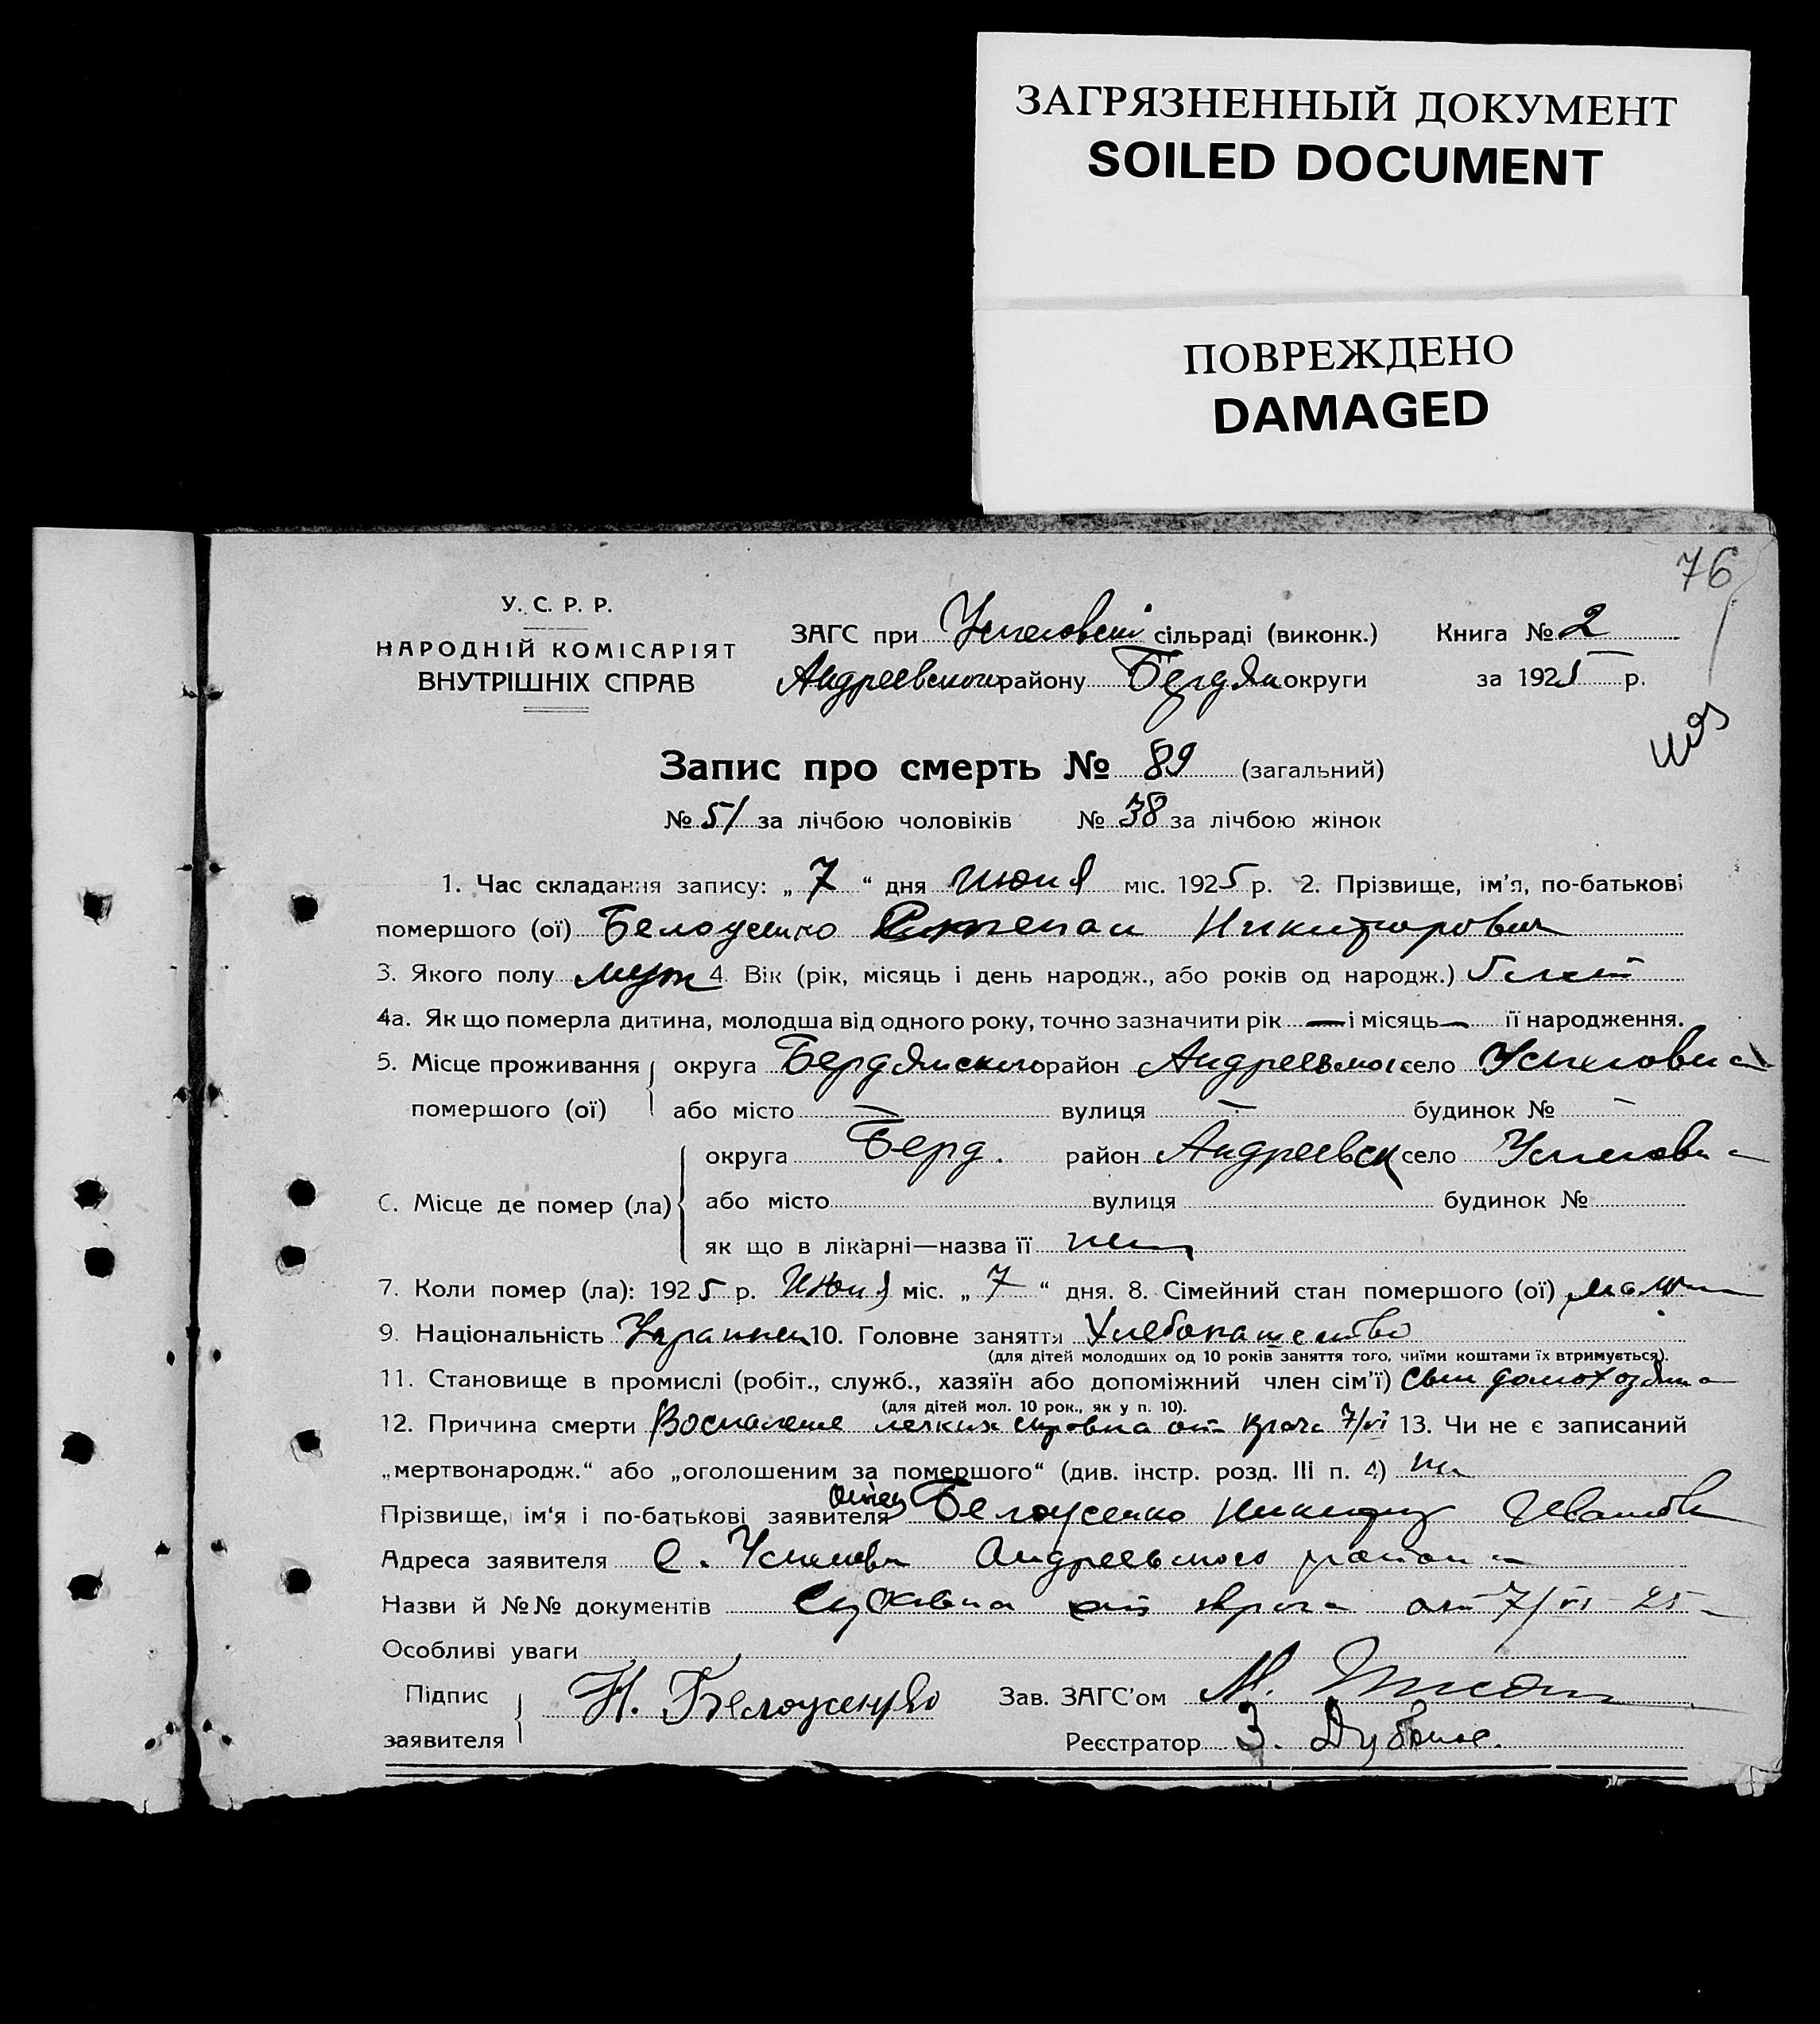 ЗАГРЯЗНЕННЫЙ ДОКУМЕНТ
SOILED DOCUMENT
ПОВРЕЖДЕНО
DAMAGED
76
У. С. Р. Р.
НАРОДНІЙ КОМІСАРІЯТ
ВНУТРІШНІХ СПРАВ
ЗАГС при сільраді (виконк.) Книга № 2
Андреевского району Бердян округи за 1925 р.
Запис про смерть № 89 (загальний)
№ 51 за лічбою чоловіків № 38 за лічбою жінок
1. Час складання запису: „ 7 “ дня июня міс. 1925 р. 2. Прізвище, ім'я, по-батькові
помершого (ої) Белоусенко Степан Никифорович
3. Якого полу муж 4. Вік (рік, місяць і день народж., або років од народж.) 5 лет
4а. Як що померла дитина, молодша від одного року, точно зазначити рік — і місяць — її народження.
5. Місце проживання округа Бердянского район Андреевског село Успеновка
помершого (ої) або місто — вулиця — будинок № —
6. Місце де помер (ла) округа Берд. район Андреевск село Успеновка
або місто вулиця будинок №
як що в лікарні—назва її нет
7. Коли помер (ла): 1925 р. Июня міс. „ 7 “ дня. 8. Сімейний стан помершого (ої)
9. Національність Украинец 10. Головне заняття Хлебопашество
(для дітей молодших од 10 років заняття того, чиїми коштами їх втримується).
11. Становище в промислі (робіт., служб., хазяїн або допоміжний член сім'ї) сын домохозяина
(для дітей мол. 10 рок., як у п. 10).
12. Причина смерти Воспаление легких справка от врача 7/VI 13. Чи не є записаний
„мертвонародж.“ або „оголошеним за помершого“ (див. інстр. розд. III п. 4) нет
Прізвище, ім'я і по-батькові заявителя отец Белоусенко Никифор Иванов
Адреса заявителя с. Успеновка Андреевского района
Назви й №№ документів Справка от врача от 7/VI 25
Особливі уваги
Підпис заявителя Н. Белоусенко Зав. ЗАГС'ом М.
Реєстратор З.